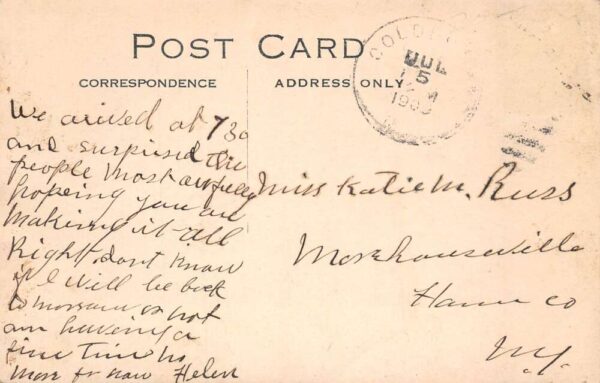 POST CARD
CORRESPONDENCE
ADDRESS ONLY
COLD
JUL
5
M
190
We arived at 730
and surprised the
people most awfully
hopeing you are
making it all
Right. dont know
if I will be back
tomorrow or not
am haveing a
fine time no
more for now Helen
Miss Katie M. Russ
Morehouseville
Ham co
N.Y.